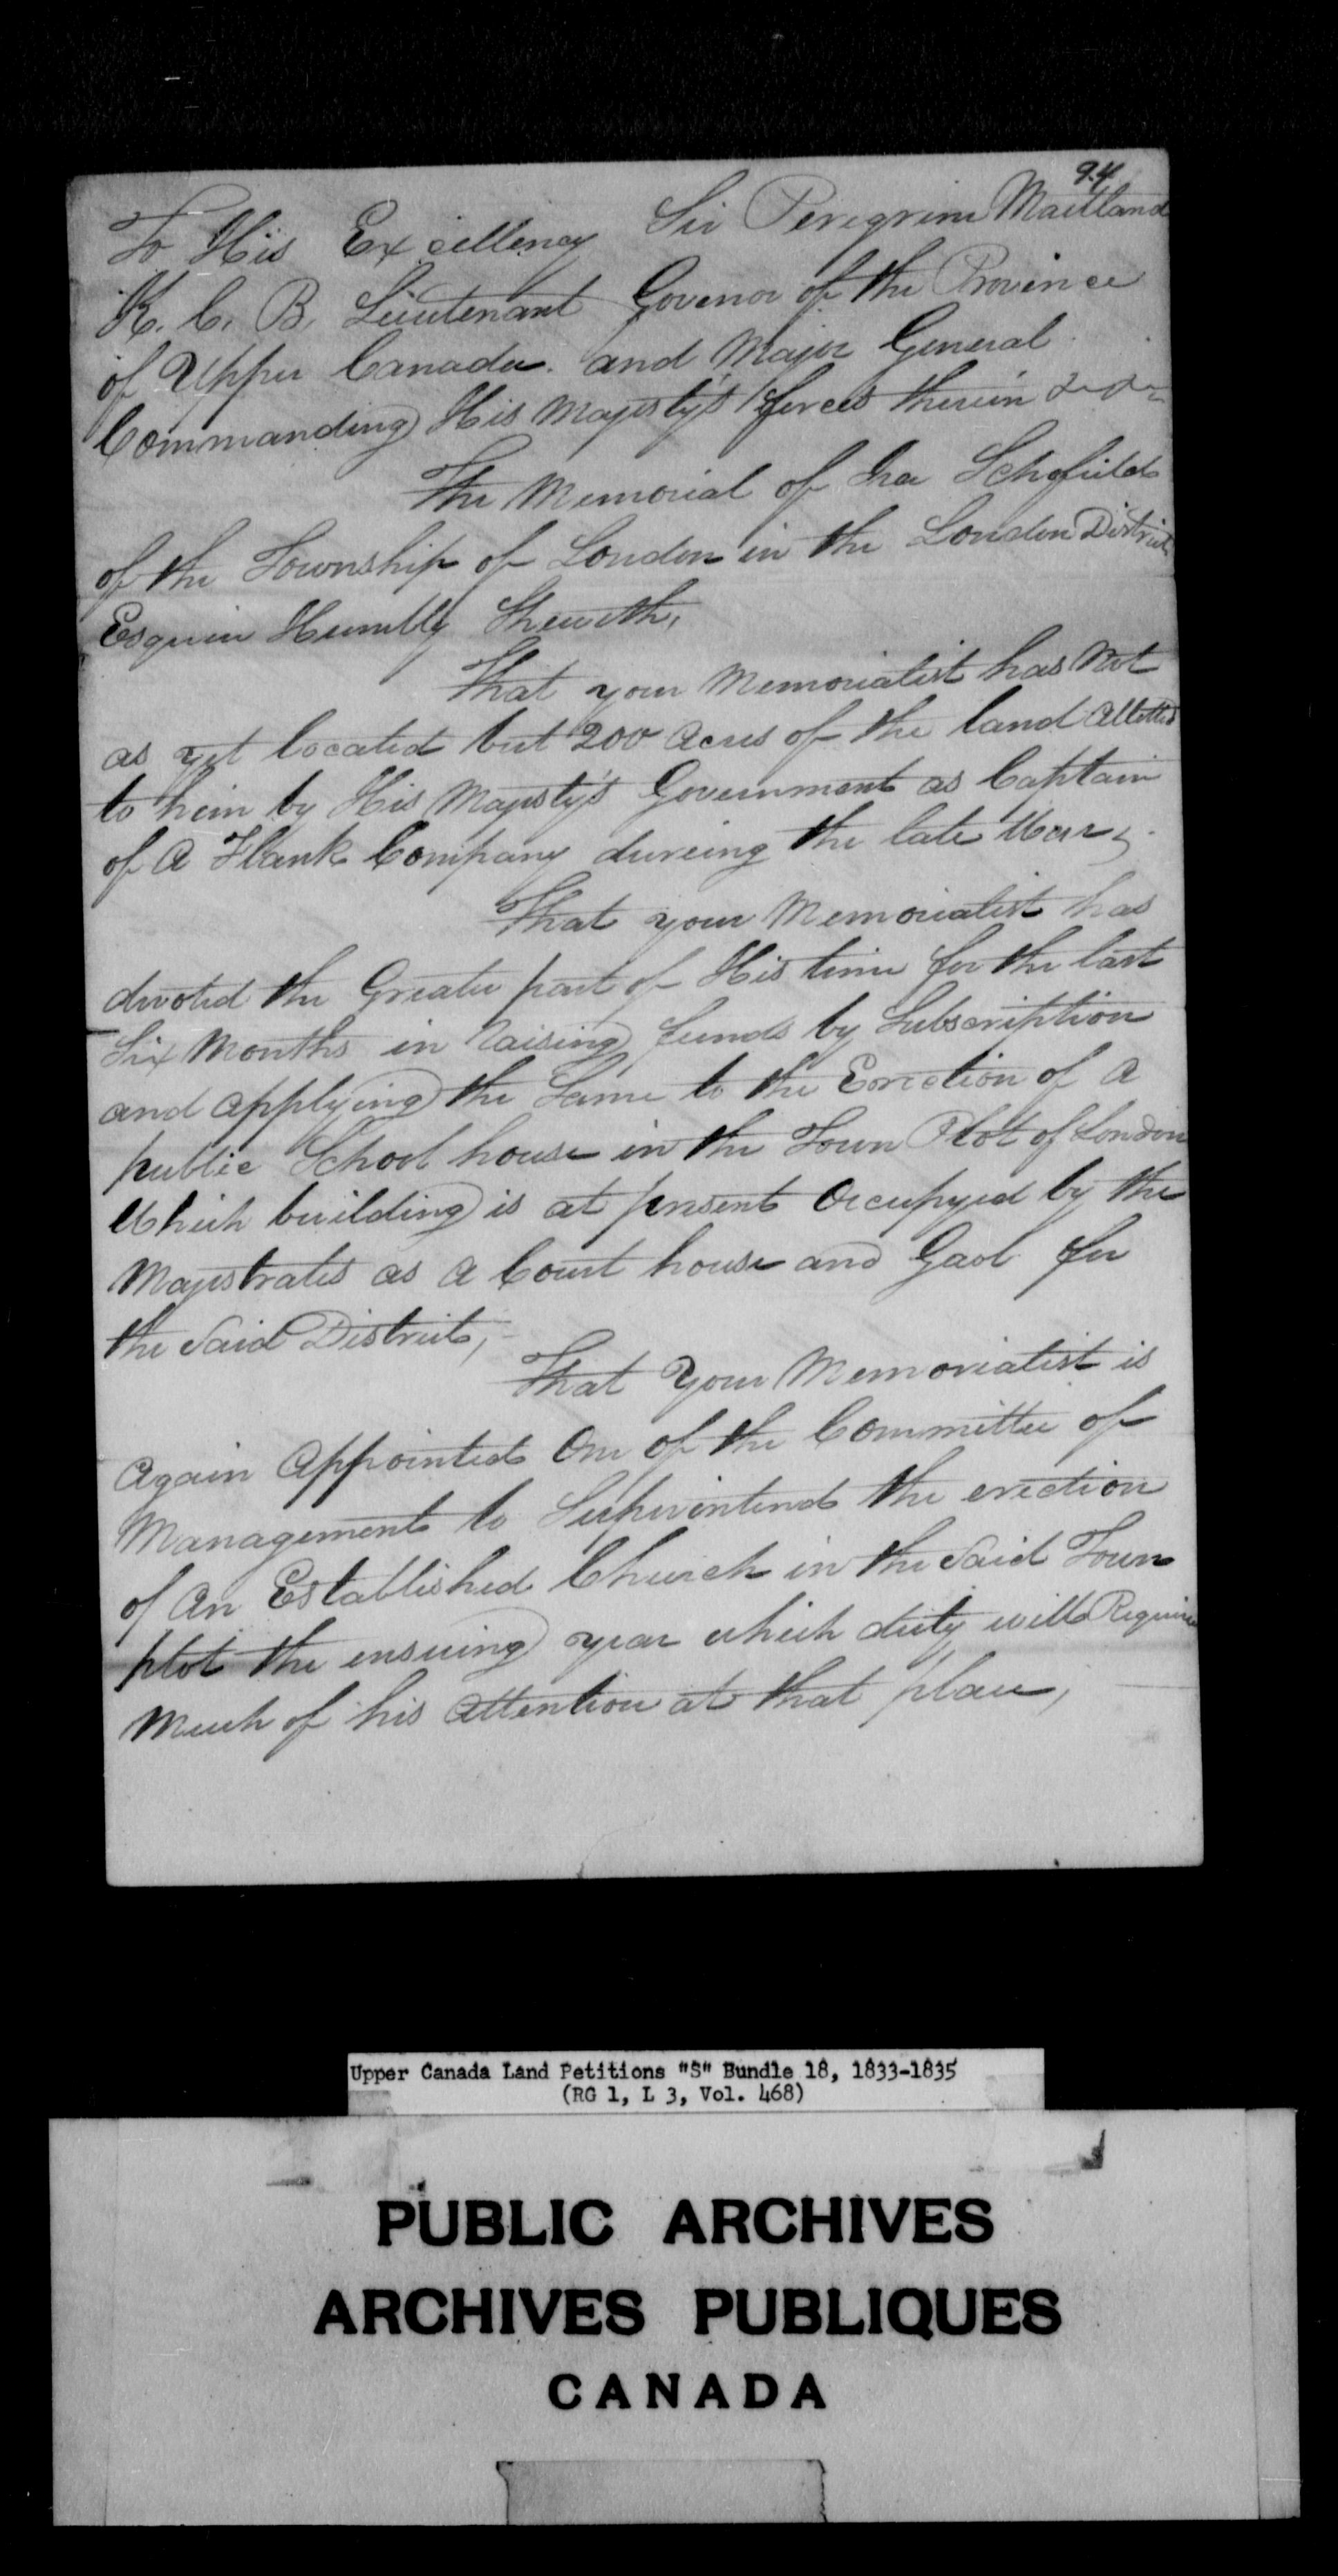 94
To His Excellency Sir Peregrine Maitland
K. C. B. Lieutenant Govenor of the Province
of Upper Canada. and Major General
Commanding His Majesty's forces therein &c &c
The Memorial of Ira Schofield
of the Township of London in the London District
Esquire Humbly Sheweth,
That your Memorialist has Not
as yet located but 200 Acres of the land Allotted
to him by His Majesty's Government as Captain
of A Flank Company dureing the late War,
That your Memorialist has
devoted the Greater part of His time for the last
Six Months in Raising funds by Subscription
and applying the Same to the Erection of A
public School house in the Town Plot of London
Which building is at present Occupyed by the
Majistrates as A Court house and Gaol for
the Said District,
That Your Memorialist is
Again Appointed One of the Committee of
Management to Superintend the erection
of An Established Church in the Said Town
plot the ensuing year which duty will Require
Much of his Attention at that place,
Upper Canada Land Petitions "S" Bundle 18, 1833-1835
(RG 1, L 3, Vol. 468)
PUBLIC ARCHIVES
ARCHIVES PUBLIQUES
CANADA